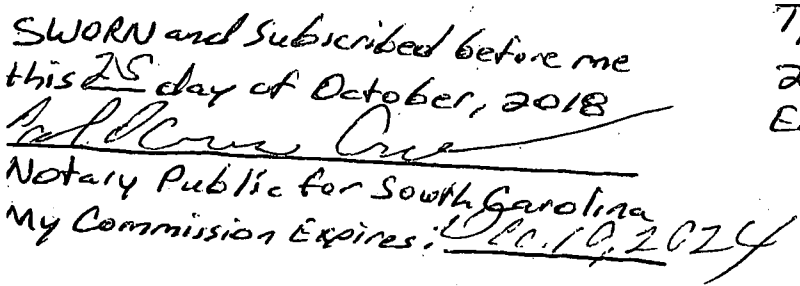 SWORN and Subscribed before me
this 25 day of October, 2018
Notary Public for South Carolina
My Commission Expires: Dec. 10, 2024